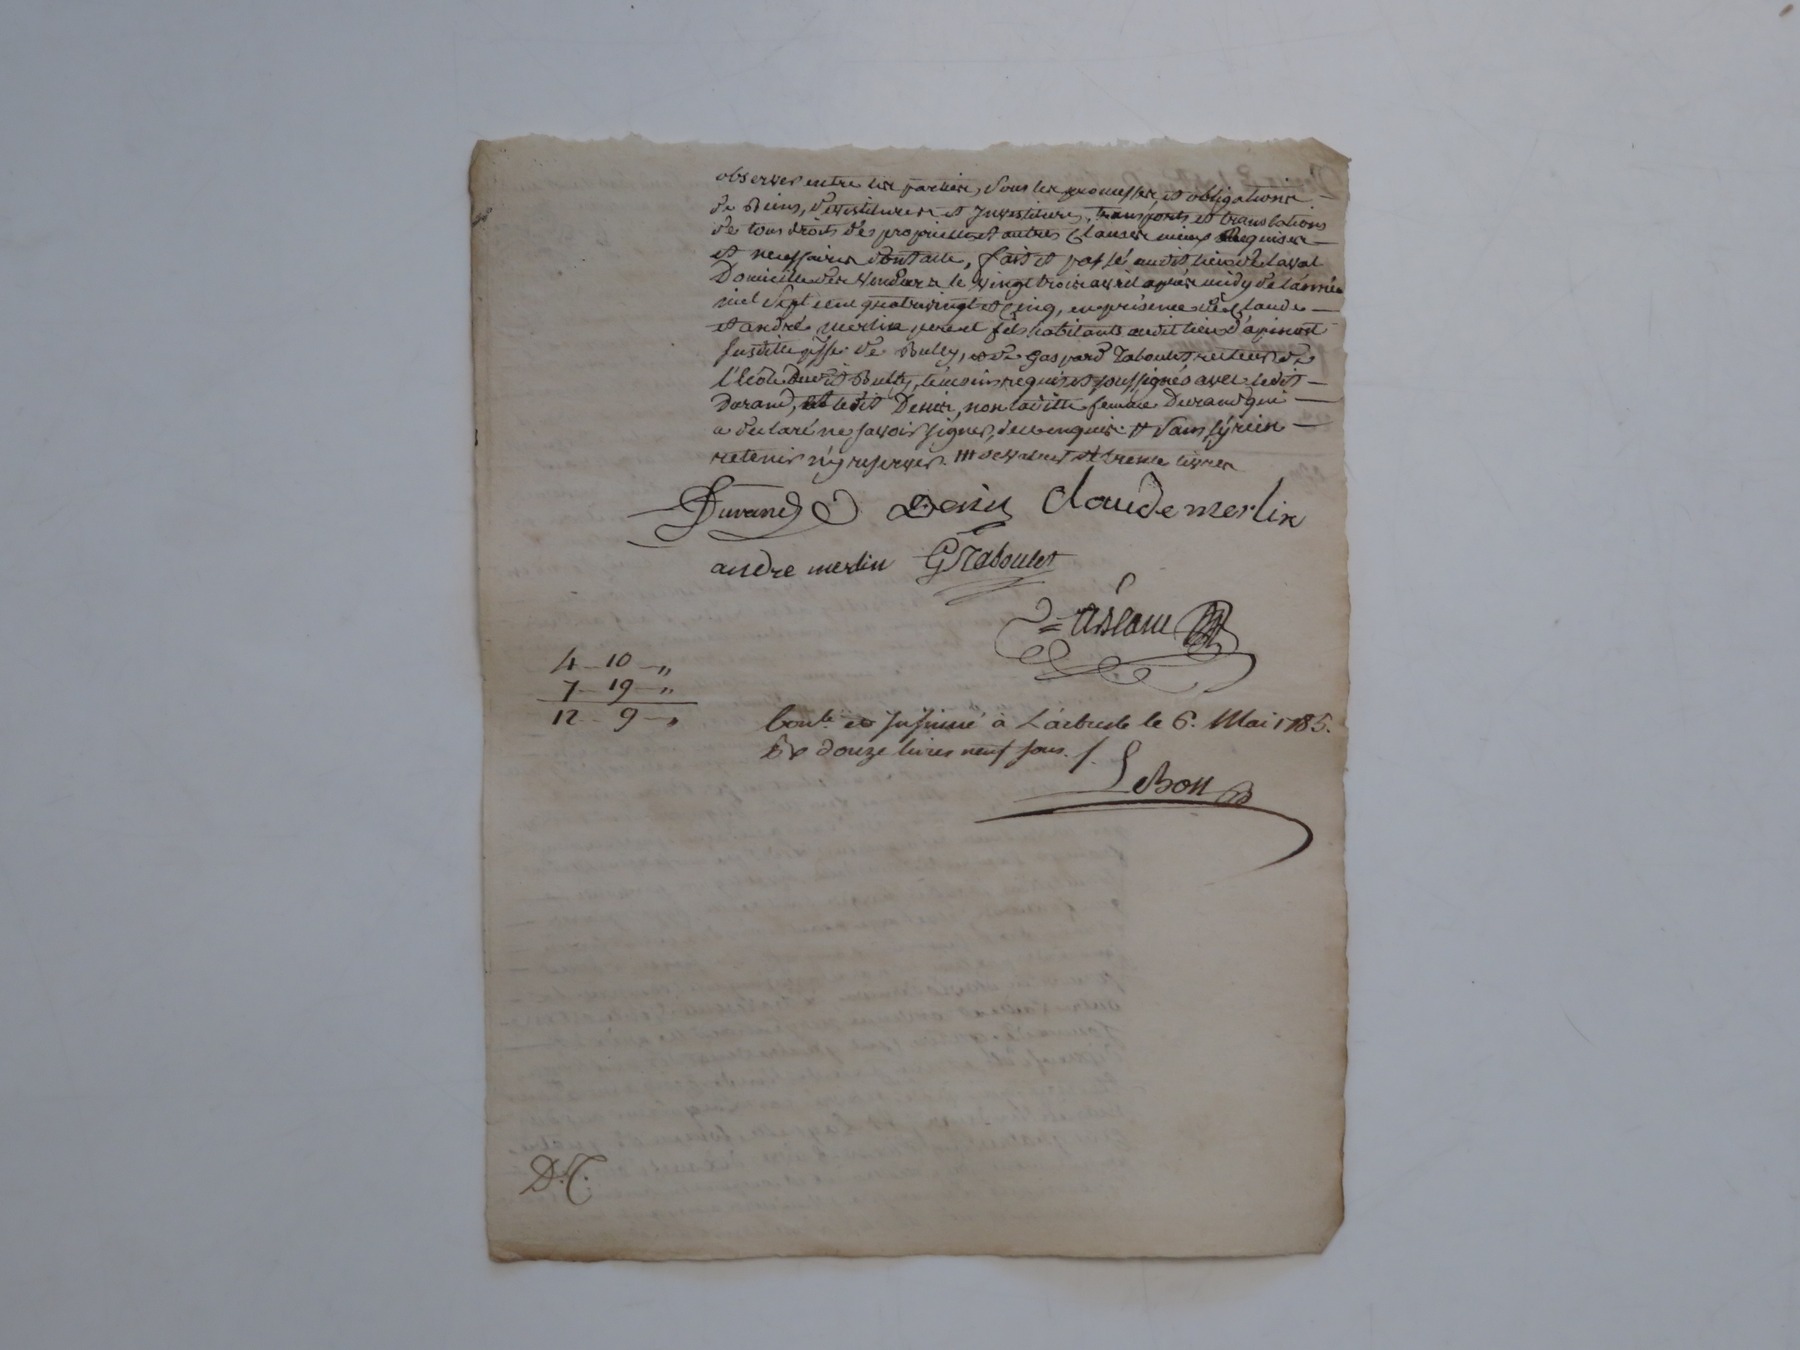 observer entre les parties, sous les promesses et obligations
de Biens, devestitures et Investitures, transports et translations
de tous droits de proprietté et autres Clauses mieux Requises
et necessaires dont acte, fait et passé audit lieu de Laval
Domicille des vendeurs le vingt trois avril après midy de l'année
mil sept cent quatrevingt et Cinq, en présence de Claude
et andré merlin pere et fils habitants audit lieu d'apinost
susditte psse. de Bully, et de Gaspard Taboulet recteur de
l'école dudit Bully, témoins requis et soussignés avec ledit
Durand, et ledit Denis, non laditte femme Durand qui
a declaré ne savoir signer, de ce enquise et sans y rien
retenir n'y reserver. de valeur de trente livres
Durand Denis Claude merlin
andre merlin G Taboulet
4 - 10 - "
7 - 19 - "
12 - 9 - "
Conlé et Insinué à L'arbresle le 6. Mai 1785.
Rx douze livres neuf sous. /.
LeBon
D.T.